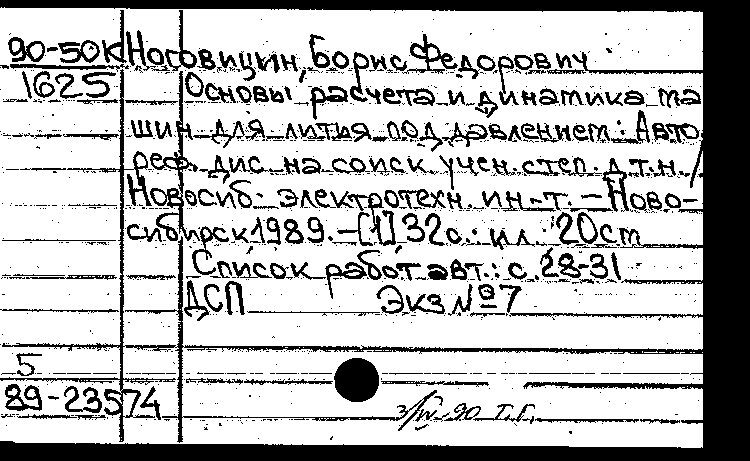 90-50К Ноговицин, Борис Федорович
1625 Основы расчета и динамика ма
шин для литья под давлением: Авто
реф. дис. на соиск. учен. степ. д.т.н. /
Новосиб. электротехн. ин-т. – Ново-
сибирск 1989. – [1] 32 с.: ил. 20 см
Список работ авт.: с. 28-31
ДСП Экз № 7
5
89-23574
3/IV-90 Т.Г.